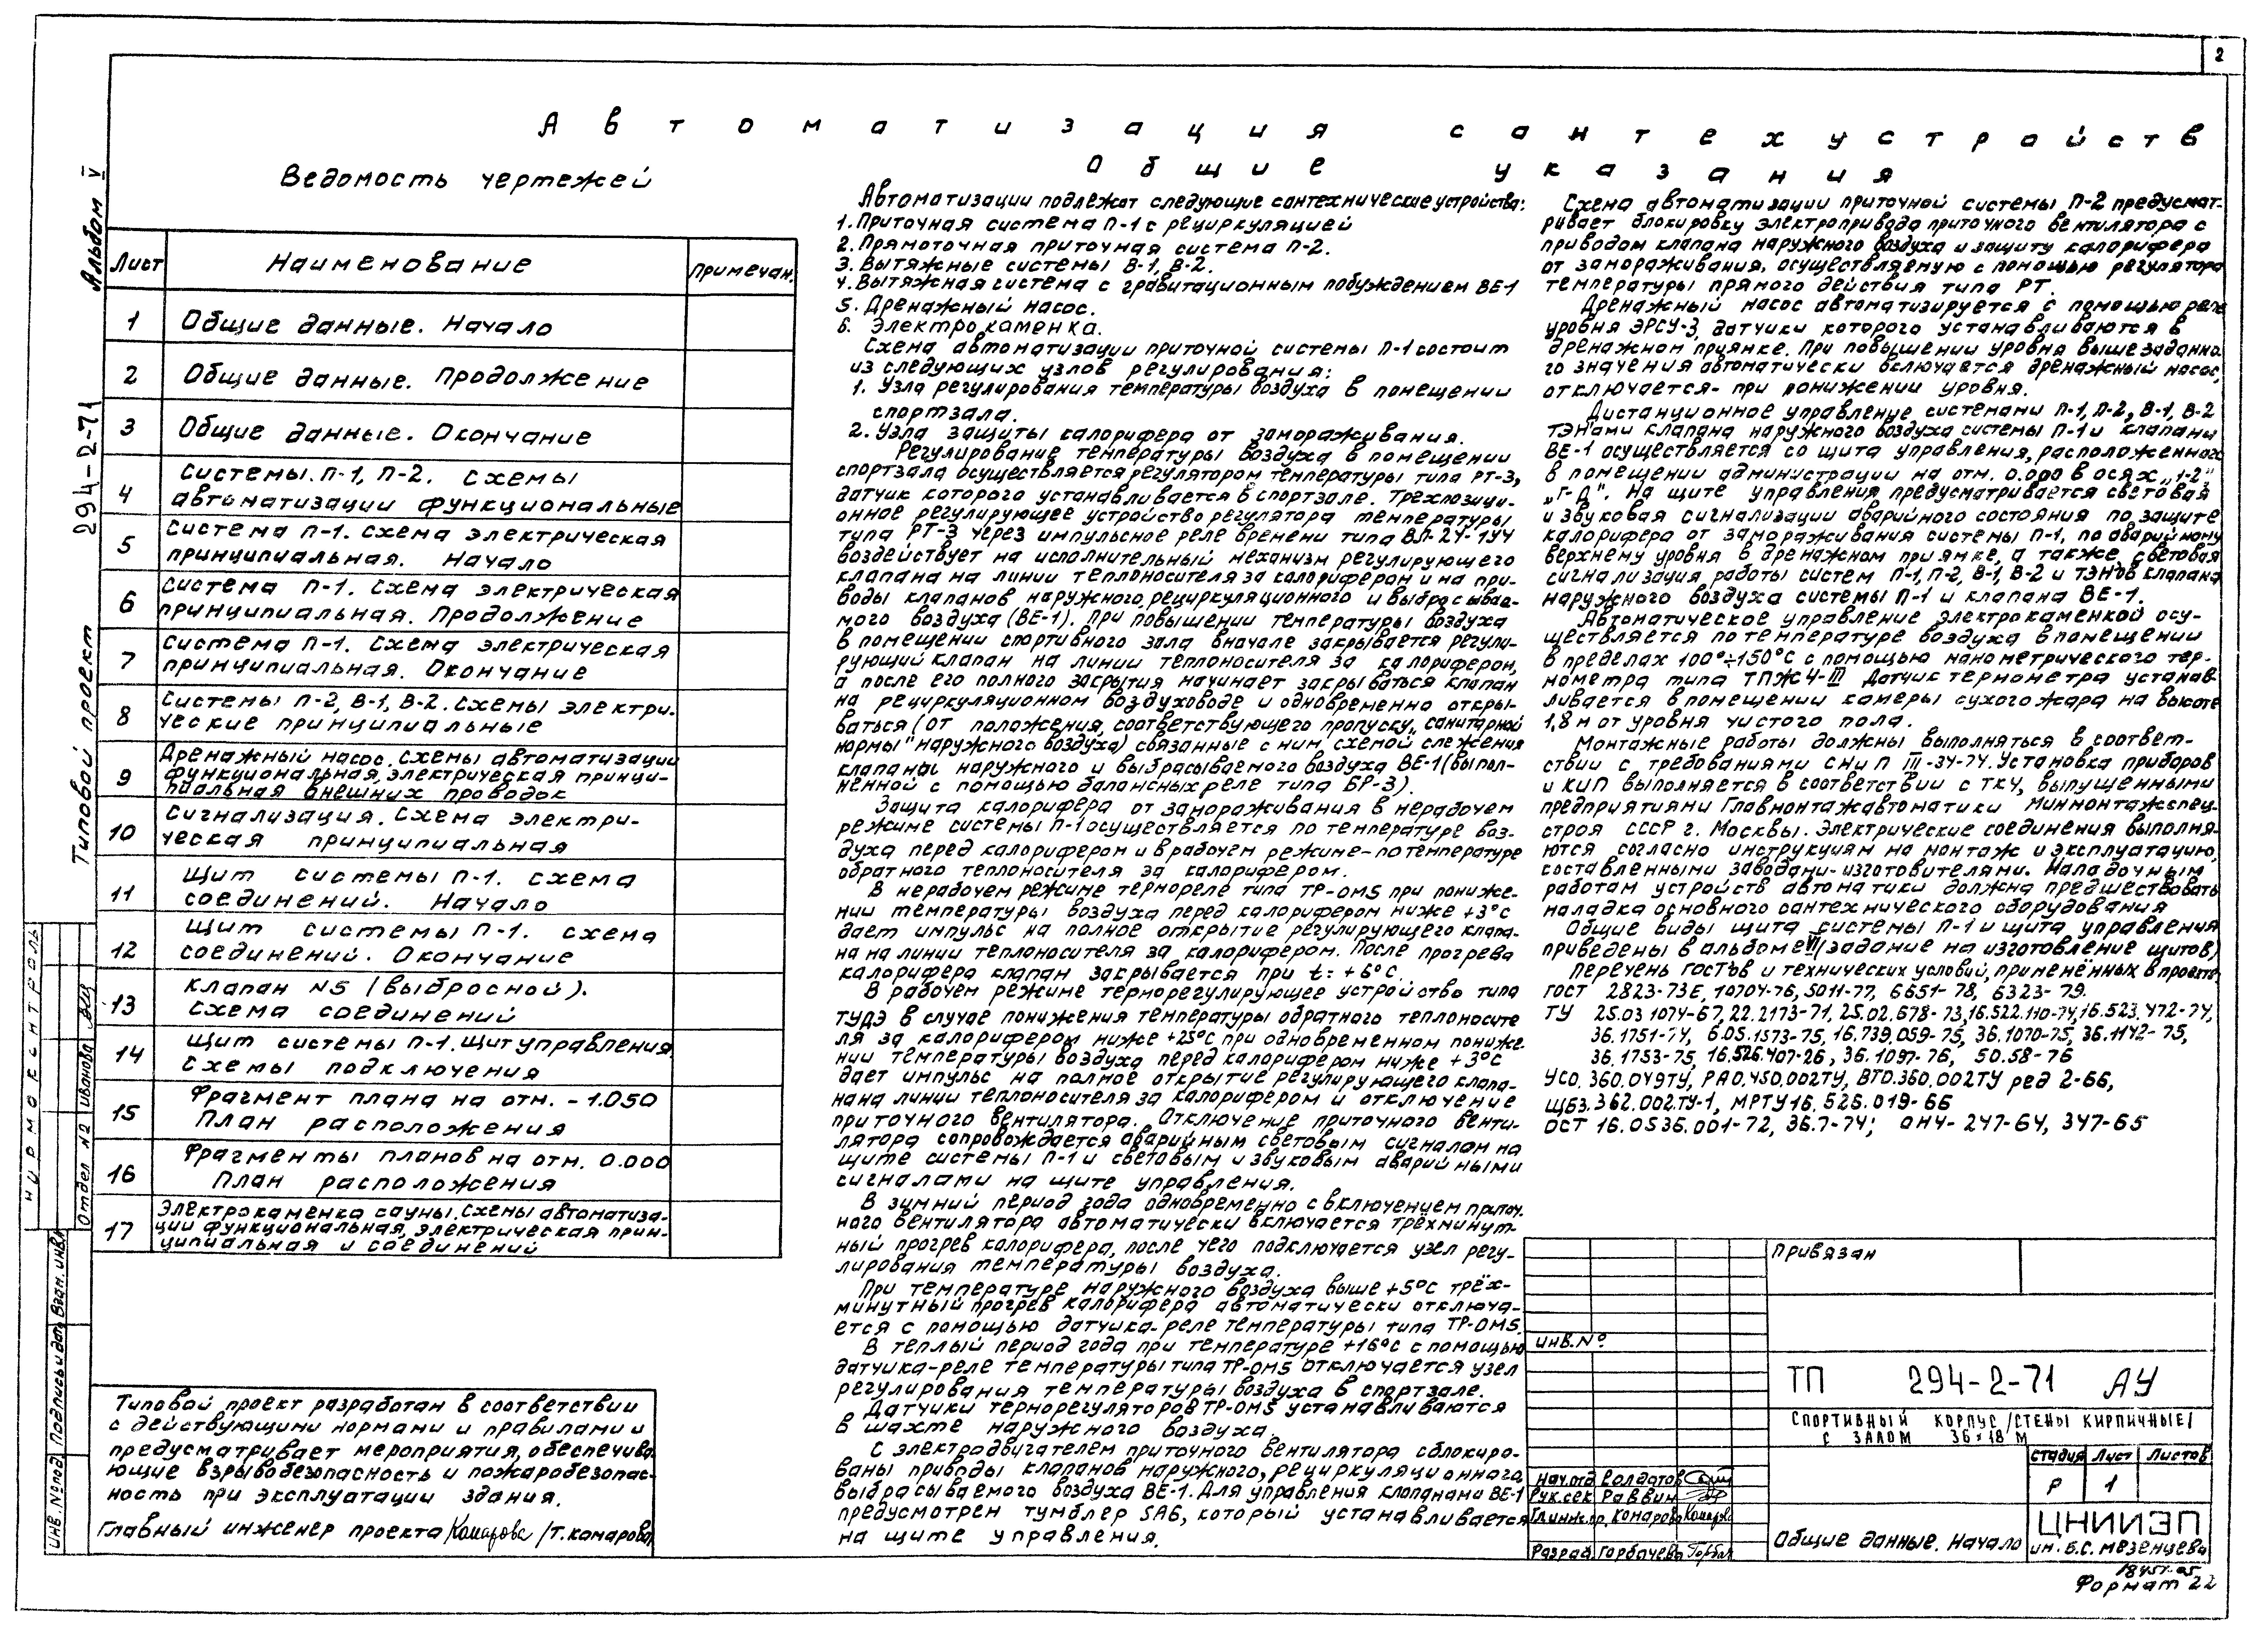 2
Автоматизация сантехустройств
Общие указания
Альбом V
Типовой проект 294-2-71
Ведомость чертежей
Лист Наименование Примечан.
1 Общие данные. Начало
2 Общие данные. Продолжение
3 Общие данные. Окончание
4 Системы П-1, П-2. Схемы
автоматизации функциональные
5 Система П-1. Схема электрическая
принципиальная. Начало
6 Система П-1. Схема электрическая
принципиальная. Продолжение
7 Система П-1. Схема электрическая
принципиальная. Окончание
8 Системы П-2, В-1, В-2. Схемы электри-
ческие принципиальные
9 Дренажный насос. Схемы автоматизации
функциональная, электрическая принци-
пиальная внешних проводок
10 Сигнализация. Схема электри-
ческая принципиальная
11 Щит системы П-1. Схема
соединений. Начало
12 Щит системы П-1. Схема
соединений. Окончание
13 Клапан N5 (выбросной).
Схема соединений
14 Щит системы П-1. Щит управления.
Схемы подключения
15 Фрагмент плана на отм. -1.050
План расположения
16 Фрагменты планов на отм. 0.000
План расположения
17 Электрокаменка сауны. Схемы автоматиза-
ции функциональная, электрическая прин-
ципиальная и соединений
Типовой проект разработан в соответствии
с действующими нормами и правилами и
предусматривает мероприятия, обеспечива-
ющие взрывобезопасность и пожаробезопас-
ность при эксплуатации здания.
Главный инженер проекта Комарова /Т. Комарова/
Автоматизации подлежат следующие сантехнические устройства:
1. Приточная система П-1 с рециркуляцией
2. Прямоточная приточная система П-2.
3. Вытяжные системы В-1, В-2.
4. Вытяжная система с гравитационным побуждением ВЕ-1
5. Дренажный насос.
6. Электрокаменка.
Схема автоматизации приточной системы П-1 состоит
из следующих узлов регулирования:
1. Узла регулирования температуры воздуха в помещении
спортзала.
2. Узла защиты калорифера от замораживания.
Регулирование температуры воздуха в помещении
спортзала осуществляется регулятором температуры типа РТ-3,
датчик которого устанавливается в спортзале. Трехпозици-
онное регулирующее устройство регулятора температуры
типа РТ-3 через импульсное реле времени типа ВЛ-24-1У4
воздействует на исполнительный механизм регулирующего
клапана на линии теплоносителя за калорифером и на при-
воды клапанов наружного, рециркуляционного и выбрасывае-
мого воздуха (ВЕ-1). При повышении температуры воздуха
в помещении спортивного зала вначале закрывается регули-
рующий клапан на линии теплоносителя за калорифером,
а после его полного закрытия начинает закрываться клапан
на рециркуляционном воздуховоде и одновременно откры-
ваться (от положения, соответствующего пропуску „санитарной
нормы" наружного воздуха) связанные с ним схемой слежения
клапаны наружного и выбрасываемого воздуха ВЕ-1 (выпол-
ненной с помощью балансных реле типа БР-3).
Защита калорифера от замораживания в нерабочем
режиме системы П-1 осуществляется по температуре воз-
духа перед калорифером и в рабочем режиме - по температуре
обратного теплоносителя за калорифером.
В нерабочем режиме термореле типа ТР-ОМ5 при пониже-
нии температуры воздуха перед калорифером ниже +3°С
дает импульс на полное открытие регулирующего клапа-
на на линии теплоносителя за калорифером. После прогрева
калорифера клапан закрывается при t = +6°С.
В рабочем режиме терморегулирующее устройство типа
ТУДЭ в случае понижения температуры обратного теплоносите
ля за калорифером ниже +25°С при одновременном пониже-
нии температуры воздуха перед калорифером ниже +3°С
дает импульс на полное открытие регулирующего клапа-
на на линии теплоносителя за калорифером и отключение
приточного вентилятора. Отключение приточного венти-
лятора сопровождается аварийным световым сигналом на
щите системы П-1 и световым и звуковым аварийными
сигналами на щите управления.
В зимний период года одновременно с включением приточ-
ного вентилятора автоматически включается трёхминут-
ный прогрев калорифера, после чего подключается узел регу-
лирования температуры воздуха.
При температуре наружного воздуха выше +5°С трёх-
минутный прогрев калорифера автоматически отключа-
ется с помощью датчика-реле температуры типа ТР-ОМ5.
В теплый период года при температуре +16°С с помощью
датчика-реле температуры типа ТР-ОМ5 отключается узел
регулирования температуры воздуха в спортзале.
Датчики терморегуляторов ТР-ОМ5 устанавливаются
в шахте наружного воздуха.
С электродвигателем приточного вентилятора сблокиро-
ваны приводы клапанов наружного, рециркуляционного,
выбрасываемого воздуха ВЕ-1. Для управления клапанами ВЕ-1
предусмотрен тумблер SA6, который устанавливается
на щите управления.
Схема автоматизации приточной системы П-2 предусмат-
ривает блокировку электропривода приточного вентилятора с
приводом клапана наружного воздуха и защиту калорифера
от замораживания, осуществляемую с помощью регулятора
температуры прямого действия типа РТ.
Дренажный насос автоматизируется с помощью реле
уровня ЭРСУ-3, датчики которого устанавливаются в
дренажном приямке. При повышении уровня выше заданно-
го значения автоматически включается дренажный насос,
отключается - при понижении уровня.
Дистанционное управление системами П-1, П-2, В-1, В-2
ТЭН'ами клапана наружного воздуха системы П-1 и клапаны
ВЕ-1 осуществляется со щита управления, расположенного
в помещении администрации на отм. 0.000 в осях „1-2",
„Г-Д". На щите управления предусматривается световая
и звуковая сигнализации аварийного состояния по защите
калорифера от замораживания системы П-1, по аварийному
верхнему уровня в дренажном приямке, а также, световая
сигнализация работы систем П-1, П-2, В-1, В-2 и ТЭНов клапана
наружного воздуха системы П-1 и клапана ВЕ-1.
Автоматическое управление электрокаменкой осу-
ществляется по температуре воздуха в помещении
в пределах 100°÷150°С с помощью манометрического тер-
мометра типа ТПЖ4-III Датчик термометра устанав-
ливается в помещении камеры сухого жара на высоте
1,8 м от уровня чистого пола.
Монтажные работы должны выполняться в соответ-
ствии с требованиями СНиП III-34-74. Установка приборов
и КИП выполняется в соответствии с ТКЧ, выпущенными
предприятиями Главмонтажавтоматики Минмонтажспец-
строя СССР г. Москвы. Электрические соединения выполня-
ются согласно инструкциям на монтаж и эксплуатацию,
составленными заводами-изготовителями. Наладочным
работам устройств автоматики должна предшествовать
наладка основного сантехнического оборудования
Общие виды щита системы П-1 и щита управления
приведены в альбоме VII (задание на изготовление щитов)
Перечень гостов и технических условий, применённых в проекте
ГОСТ 2823-73Е, 10704-76, 5011-77, 6651-78, 6323-79.
ТУ 25.03 1074-67, 22.2173-71, 25.02.678-73, 16.522.110-74, 16.523.472-74,
36.1751-74, 6.05.1573-75, 16.739.059-75, 36.1070-75, 36.1142-75,
36.1753-75, 16.526.407-26, 36.1097-76, 50.58-76
УСО.360.049ТУ, РАО.450.002ТУ, ВТО.360.002ТУ ред 2-66,
ЩБЗ.362.002.ТУ-1, МРТУ16.526.019-66
ОСТ 16.0536.001-72, 36.7-74; ОН4-247-64, 347-65
Привязан
Инв.№
ТП 294-2-71 АУ
Спортивный корпус /стены кирпичные/
с залом 36×18 м
Стадия Лист Листов
Р 1
Нач.отд Солдатов
Рук.сек Раввин
Гл.инж.пр. Комарова Комарова
Разраб Горбачева Горбач
Общие данные. Начало
ЦНИИЭП
им. Б.С. Мезенцева
18451-05
Формат 22
Нормоконтроль
Отдел №2 Иванова
Инв.№подл Подпись и дата Взам. инв.№